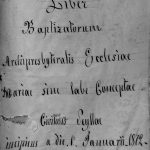 Liber
Baptizatorum
Archipresbyteralis Ecclesiae
Mariae sine labe Conceptae
Civitatis
incipiens a die 1. Januarii 1872.